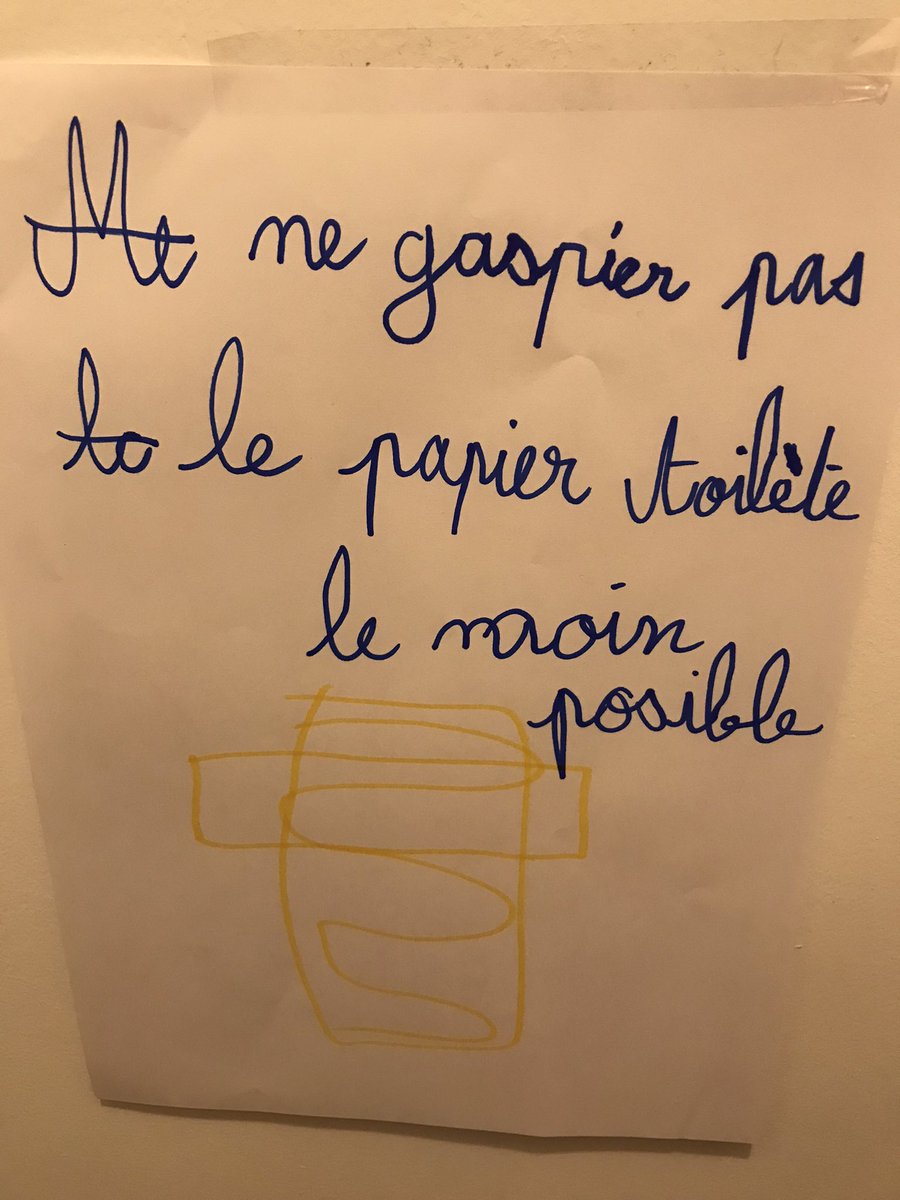 ne gaspier pas
le papier toilète
le moin
posible